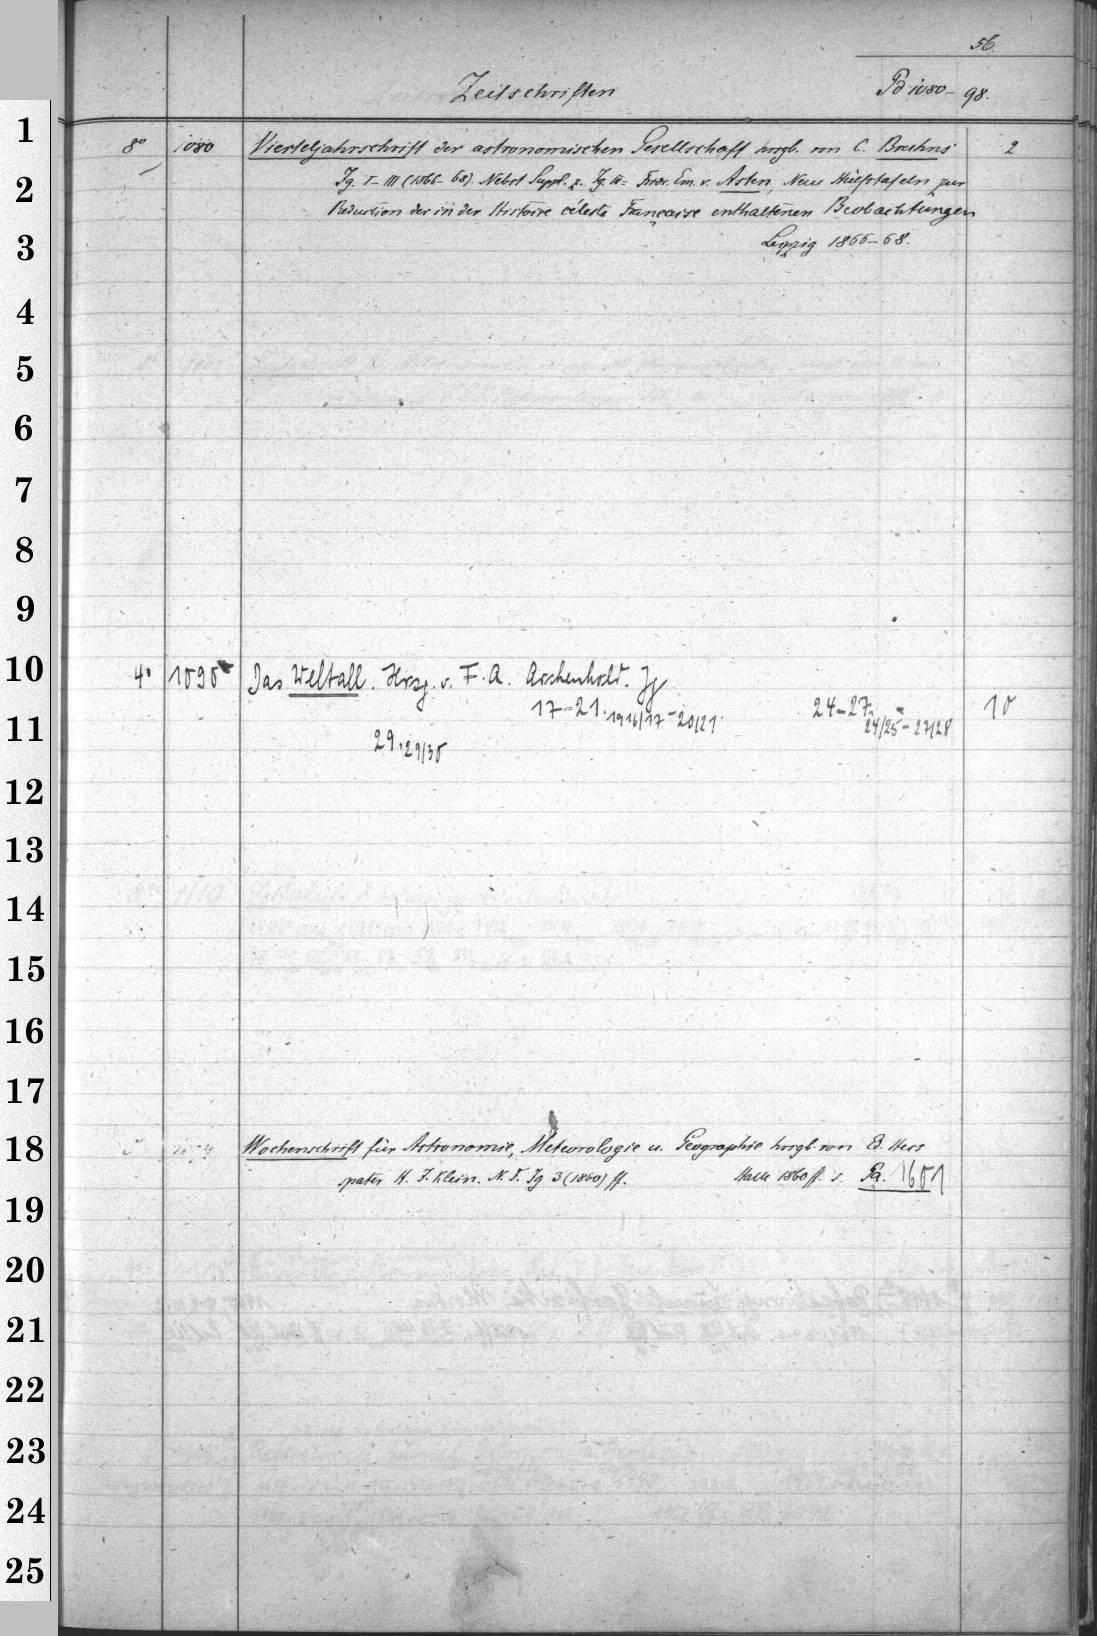 56.
Zeitschriften Pd 1080-98.
8° 1080 Vierteljahrschrift der astronomischen Gesellschaft hrgb. von C. Bruhns 2
Jg. I-III (1866-68). Nebst Suppl. z. Jg. III = Frdr. Em. v. Asten, Neue Hülfstafeln zur
Reduction der in der Histoire céleste Française enthaltenen Beobachtungen
Leipzig 1866-68.
4° 1090 Das Weltall. Hrsg. v. F. A. Archenhold. Jg
17-21. 1916/17-20/21. 24-27. 24/25-27/28 10
29. 29/30
Wochenschrift für Astronomie, Meteorologie u. Geographie hrgb. von Ed. Heis
später H. J. Klein. N. F. Jg 3 (1860) ff. Halle 1860 ff. s. Pa. 1601
1
2
3
4
5
6
7
8
9
10
11
12
13
14
15
16
17
18
19
20
21
22
23
24
25